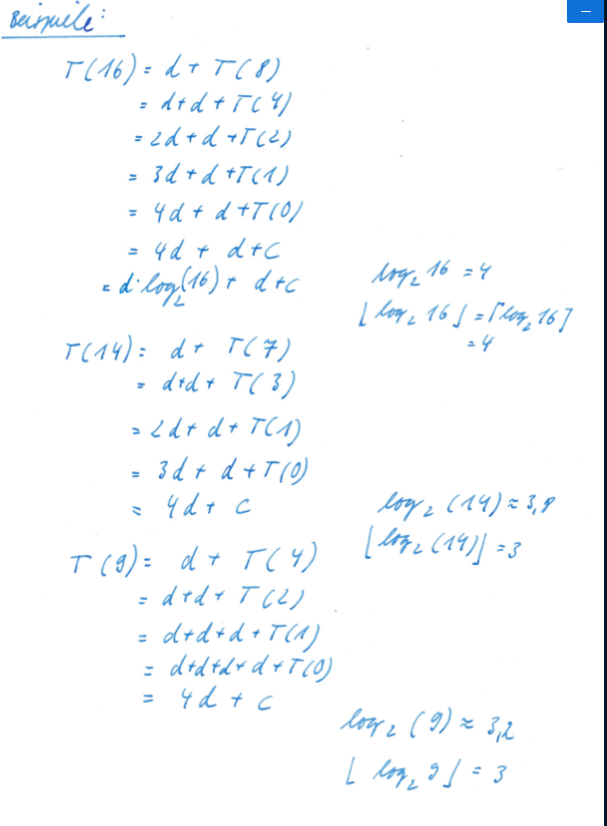 Beispiele:
T(16) = d + T(8)
= d+d + T(4)
= 2d + d + T(2)
= 3d + d + T(1)
= 4d + d + T(0)
= 4d + d + c
= d · log₂(16) + d + c
log₂ 16 = 4
⌊log₂ 16⌋ = ⌈log₂ 16⌉
= 4
T(14) = d + T(7)
= d+d + T(3)
= 2d + d + T(1)
= 3d + d + T(0)
= 4d + c
log₂(14) ≈ 3,8
⌊log₂(14)⌋ = 3
T(9) = d + T(4)
= d+d + T(2)
= d+d+d + T(1)
= d+d+d+d + T(0)
= 4d + c
log₂(9) ≈ 3,2
⌊log₂ 9⌋ = 3